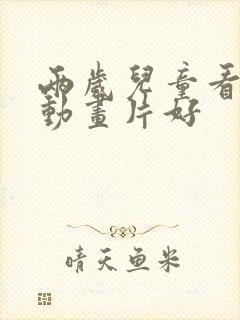 兩歲兒童看
動畫片好
晴天鱼米